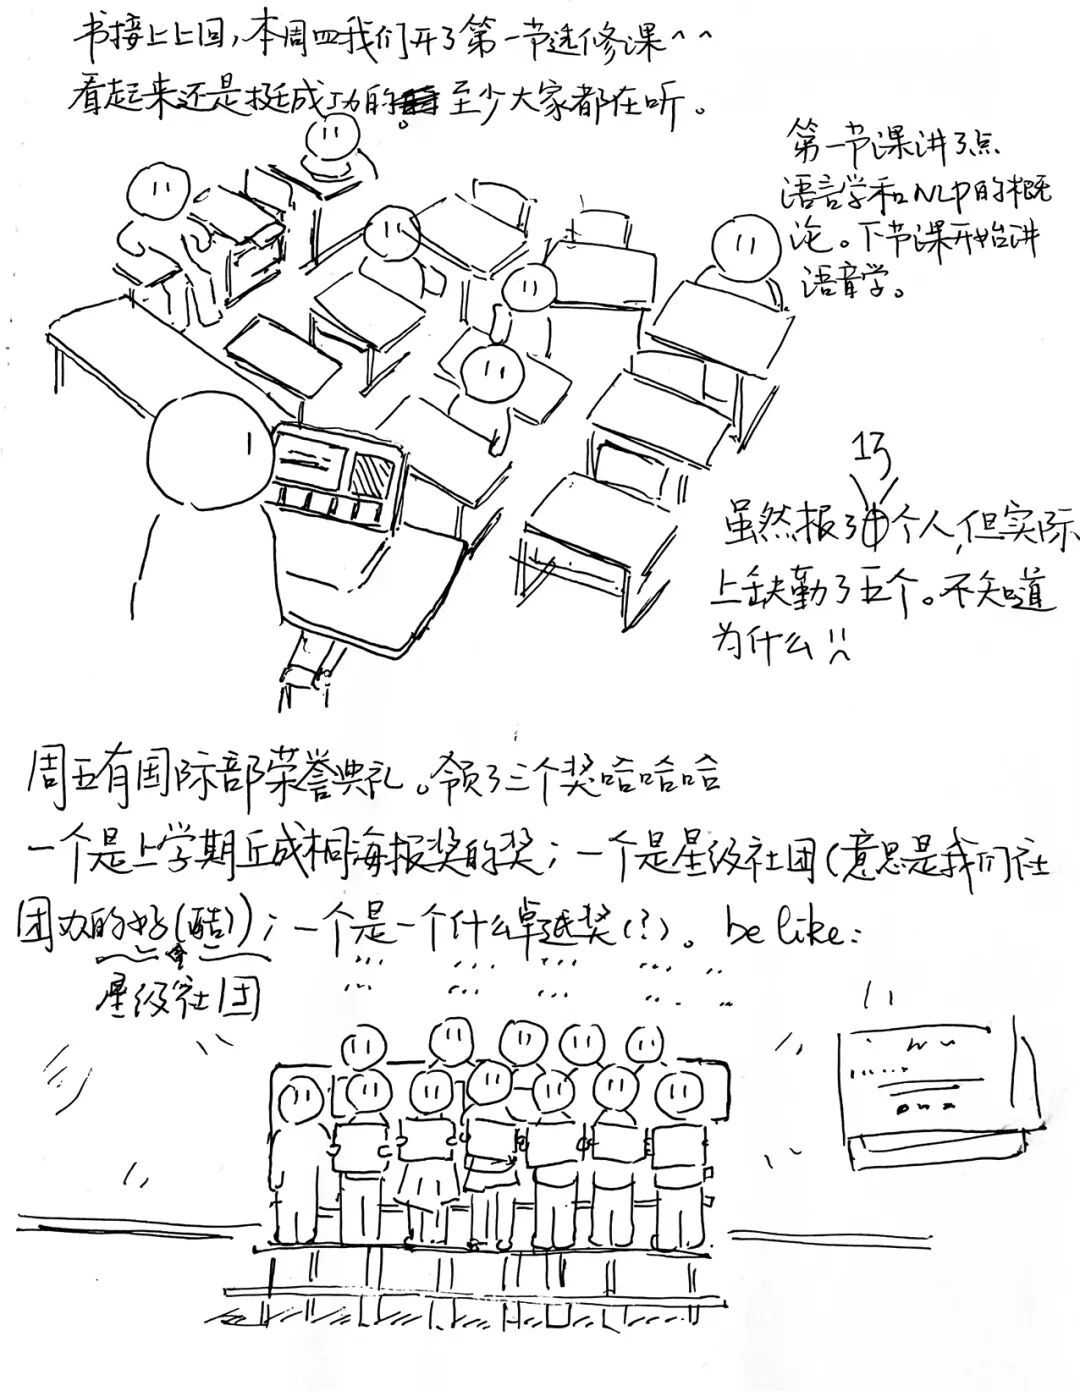 书接上上回，本周四我们开了第一节选修课^^
看起来还是挺成功的。至少大家都在听。
第一节课讲了点
语言学和NLP的概
论。下节课开始讲
语音学。
13
虽然报了个人，但实际
上缺勤了五个。不知道
为什么
周五有国际部荣誉典礼。领了三个奖哈哈哈
一个是上学期丘成桐海报奖的奖；一个是星级社团（意思是我们社
团办的好（酷））；一个是一个什么卓越奖（？）。be like：
星级社团